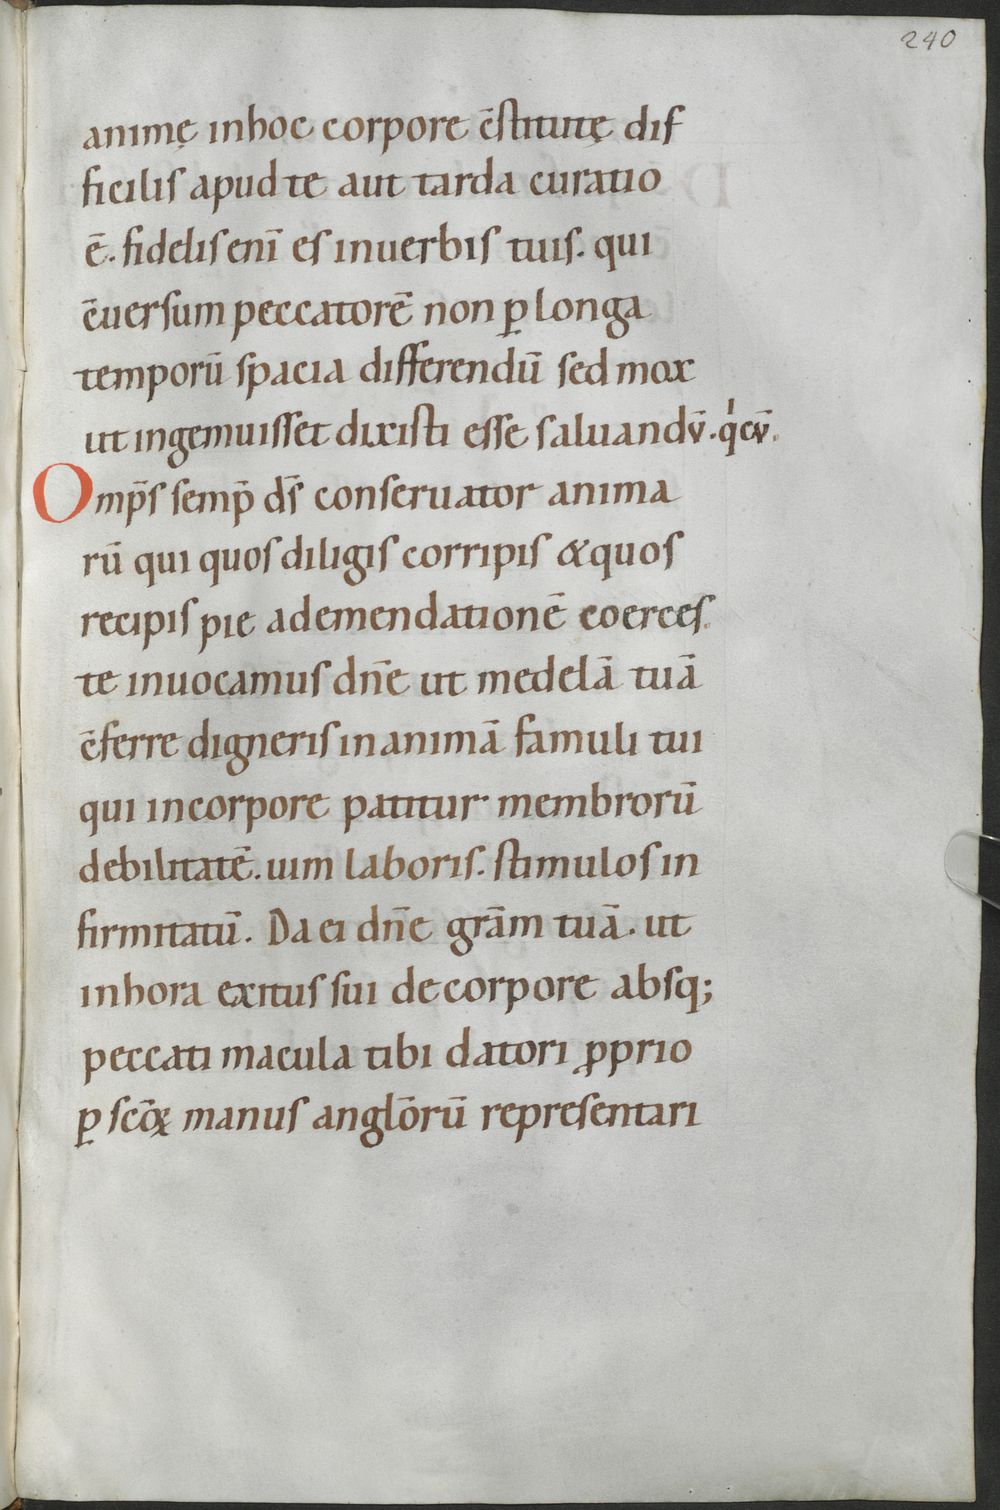 240
animę inhoc corpore c̄stitutę dif
ficilis apud te aut tarda curatio
ē. fidelis eni͞ es inuerbis tuis. qui
c̄uersum peccatorē non ꝑ longa
temporū spacia differendū sed mox
ut ingemuisset dixisti esse saluandv̄. q̍cv̄.
Omp̄s semp̄ ds̄ conseruator anima
rū qui quos diligis corripis &quos
recipis pie ademendationē coerces.
te inuocamus dn̄e ut medelā tuā
c̄ferre digneris inanimā famuli tui
qui incorpore patitur membrorū
debilitatē. uim laboris. stimulos in
firmitatū. Da ei dn̄e grām tuā. ut
inhora exitus sui decorpore absq;
peccati macula tibi datori ꝓprio
ꝑ scōꝝ manus anglōrū representari